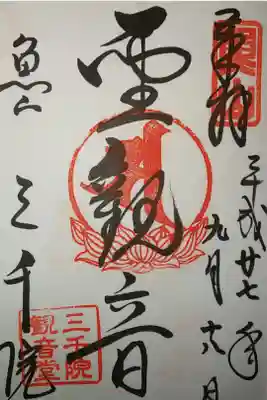 奉拝
平成廿七年
九月日
聖観音
魚山
三千院
三千院
観音堂